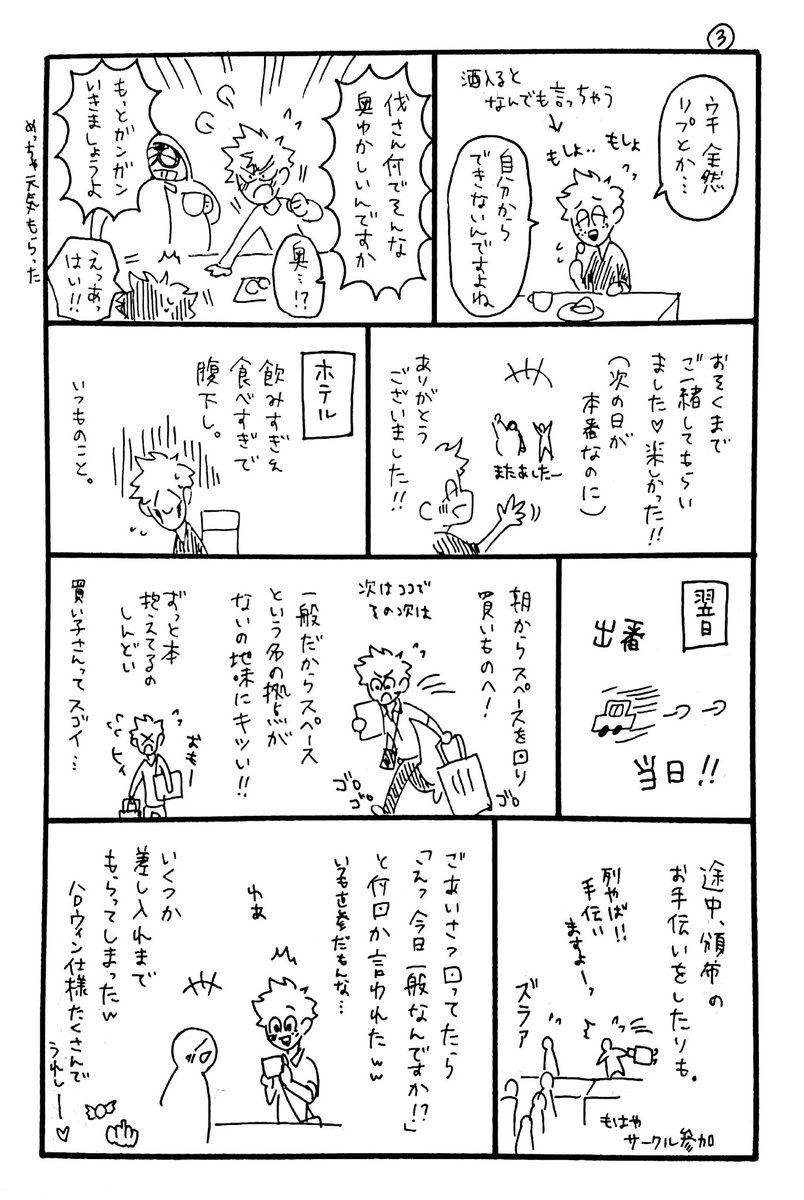 ③
ウチ全然
リプとか…
酒入ると
なんでも言っちゃう
もしょ
もしょ..
自分から
できないんですよね
伐さん何でそんな
奥ゆかしいんですか
奥…!?
もっとガンガン
いきましょうよ
えっあっ
はい!!
めっちゃ元気もらった
おそくまで
ご一緒してもらい
ました♡楽しかった!!
(次の日が
本番なのに)
またあしたー
ありがとう
ございました!!
ホテル
飲みすぎ&
食べすぎで
腹下し。
いつものこと。
翌日
出番
当日!!
朝からスペースを回り
買いものへ!
次はココで
その次は
ゴロゴロ
ゴロ
一般だからスペース
という名の拠点が
ないの地味にキツい!!
ずっと本
抱えてるの
しんどい
おもー
ヒィ
買い子さんってスゴイ…
途中、頒布の
お手伝いをしたりも。
列やば!!
手伝い
ますよーっ
ズラァ
もはや
サークル参加
ごあいさつ回ってたら
「えっ今日一般なんですか!?」
と何回か言われたww
いつもサ参だもんな…
わあ
いくつか
差し入れまで
もらってしまったw
ハロウィン仕様たくさんで
うれしー♡